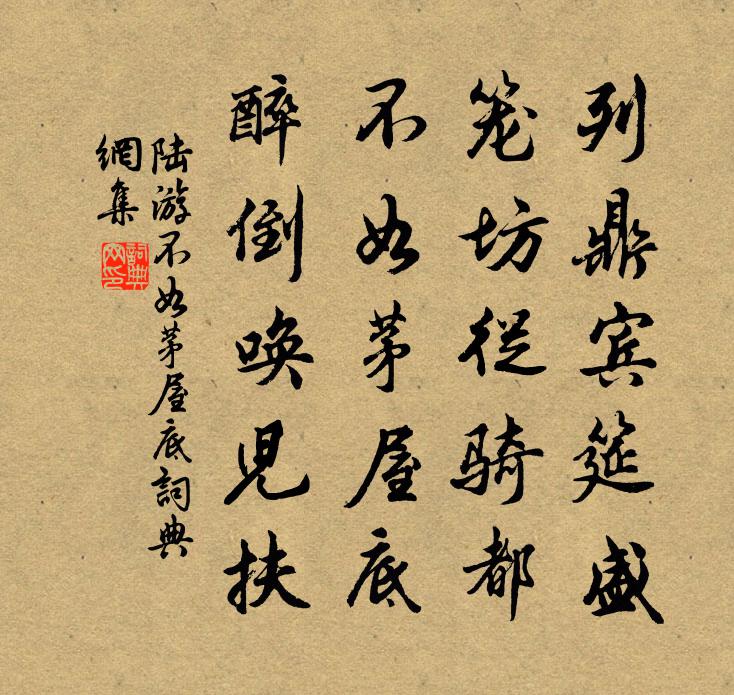 列鼎宾筵盛
笼坊从骑都
不如茅屋底
醉倒唤儿扶
陆游不如茅屋底詞典
網集
詞典
网印